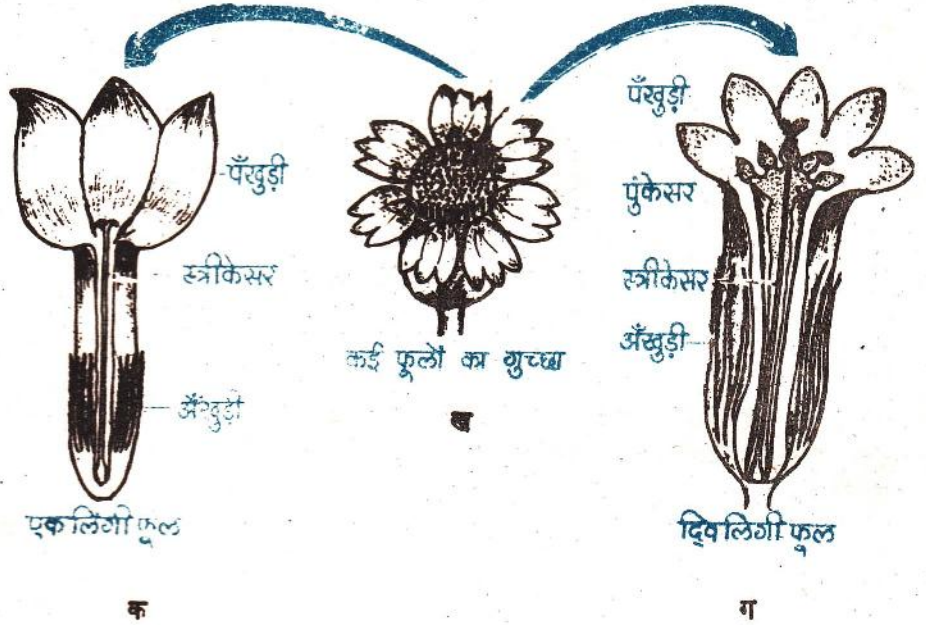 पँखुड़ी
स्त्रीकेसर
अँखुड़ी
एकलिंगी फूल
क
कई फूलों का गुच्छा
ख
पँखुड़ी
पुंकेसर
स्त्रीकेसर
अँखुड़ी
द्विलिंगी फूल
ग